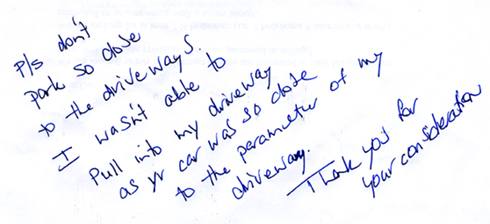 Pls don't
park so close
to the driveways.
I wasn't able to
pull into my driveway
as yr car was so close
to the perameter of my
driveway.
Thank you for
your consideration